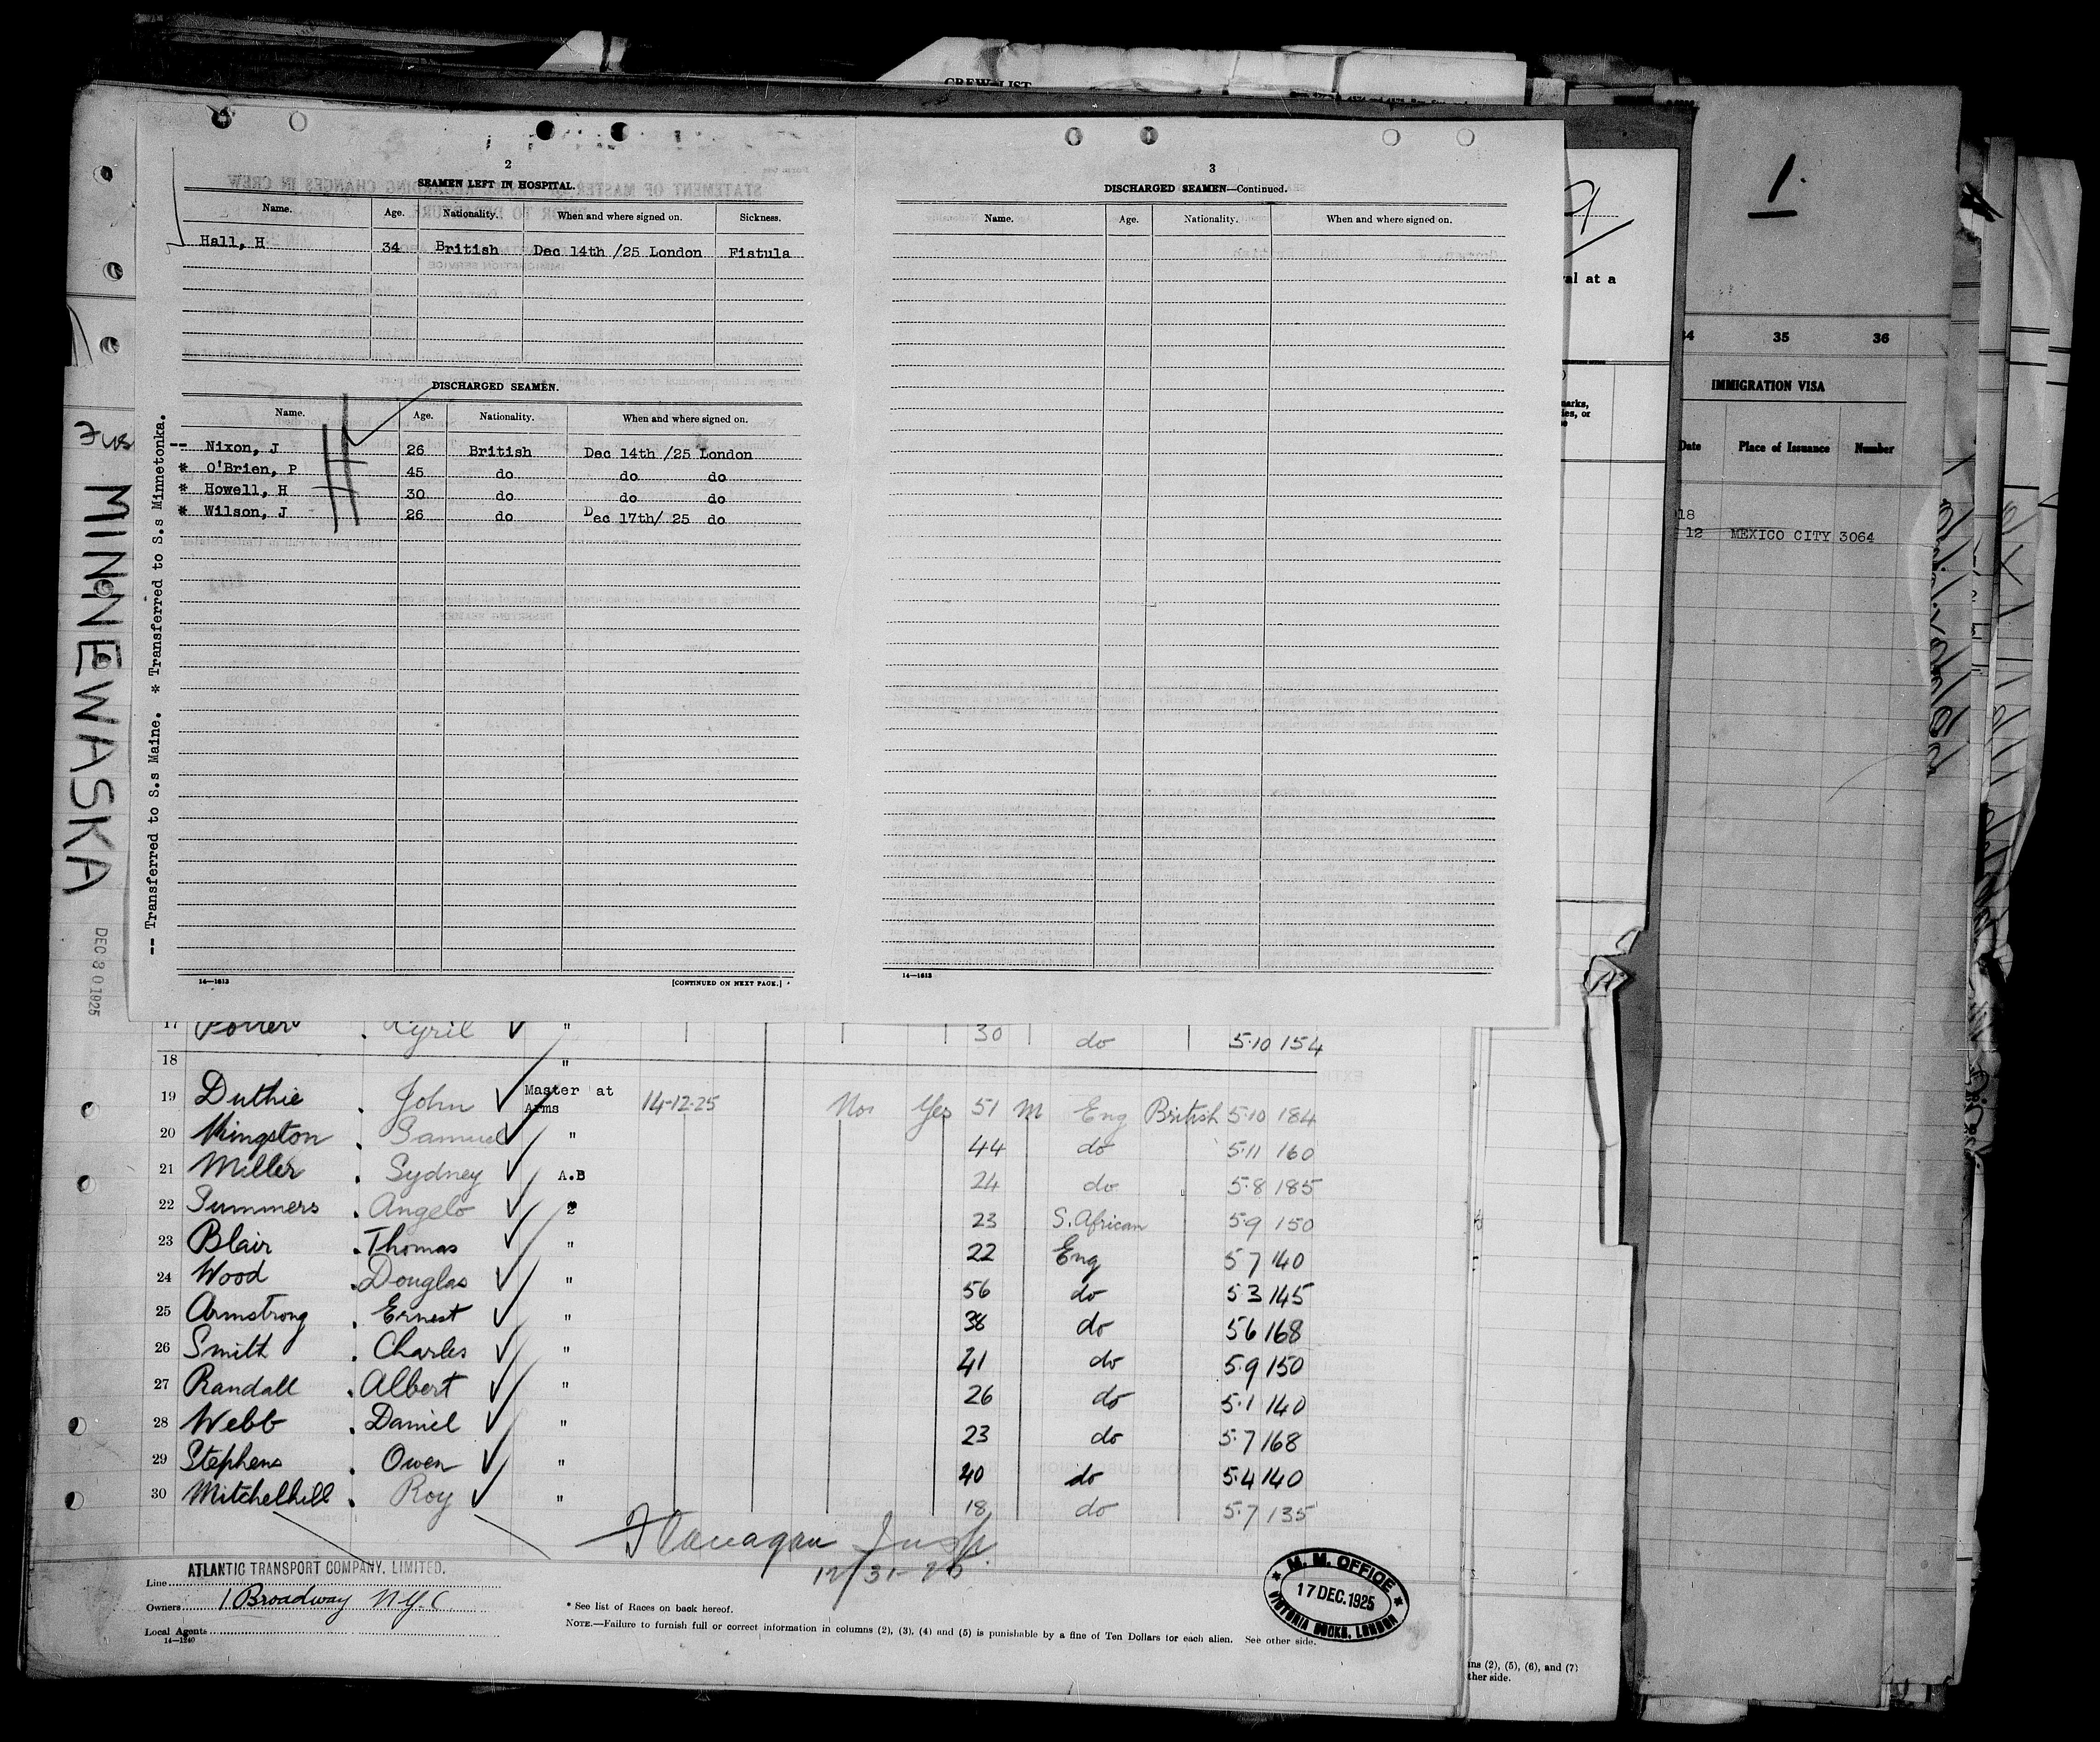 CREW LIST
2
SEAMEN LEFT IN HOSPITAL.
Name. Age. Nationality. When and where signed on. Sickness.
Hall, H 34 British Dec 14th /25 London Fistula
DISCHARGED SEAMEN.
Name. Age. Nationality. When and where signed on.
-- Nixon, J 26 British Dec 14th /25 London
* O'Brien, P 45 do do do
* Howell, H 30 do do do
* Wilson, J 26 do Dec 17th/ 25 do
-- Transferred to S.s Maine. * Transferred to S.s Minnetonka.
14—1613 [CONTINUED ON NEXT PAGE.]
3
DISCHARGED SEAMEN—Continued.
Name. Age. Nationality. When and where signed on.
14—1613
MINNEWASKA
DEC 30 1925
17 Potter Kyril " 30 do 5·10 154
18 "
19 Duthie John Master at Arms 14-12-25 Nor Yes 51 M Eng British 5·10 184
20 Kingston Samuel " 44 do 5·11 160
21 Miller Sydney A.B 24 do 5·8 185
22 Summers Angelo " 23 S. African 5·9 150
23 Blair Thomas " 22 Eng 5 7 140
24 Wood Douglas " 56 do 5 3 145
25 Armstrong Ernest " 38 do 5 6 168
26 Smith Charles " 41 do 5·9 150
27 Randall Albert " 26 do 5·1 140
28 Webb Daniel " 23 do 5·7 168
29 Stephens Owen " 40 do 5·4 140
30 Mitchelhill Roy " 18 do 5·7 135
Flanagan Insp.
12/31-25
ATLANTIC TRANSPORT COMPANY, LIMITED.
Line
Owners 1 Broadway N.Y.C.
Local Agents
14—1240
* See list of Races on back hereof.
NOTE.—Failure to furnish full or correct information in columns (2), (3), (4) and (5) is punishable by a fine of Ten Dollars for each alien. See other side.
M. M. OFFICE
17 DEC. 1925
VICTORIA DOCKS, LONDON
9
val at a
marks,
ins (2), (5), (6), and (7)
ther side.
1.
34 35 36
IMMIGRATION VISA
Date Place of Issuance Number
18
12 MEXICO CITY 3064